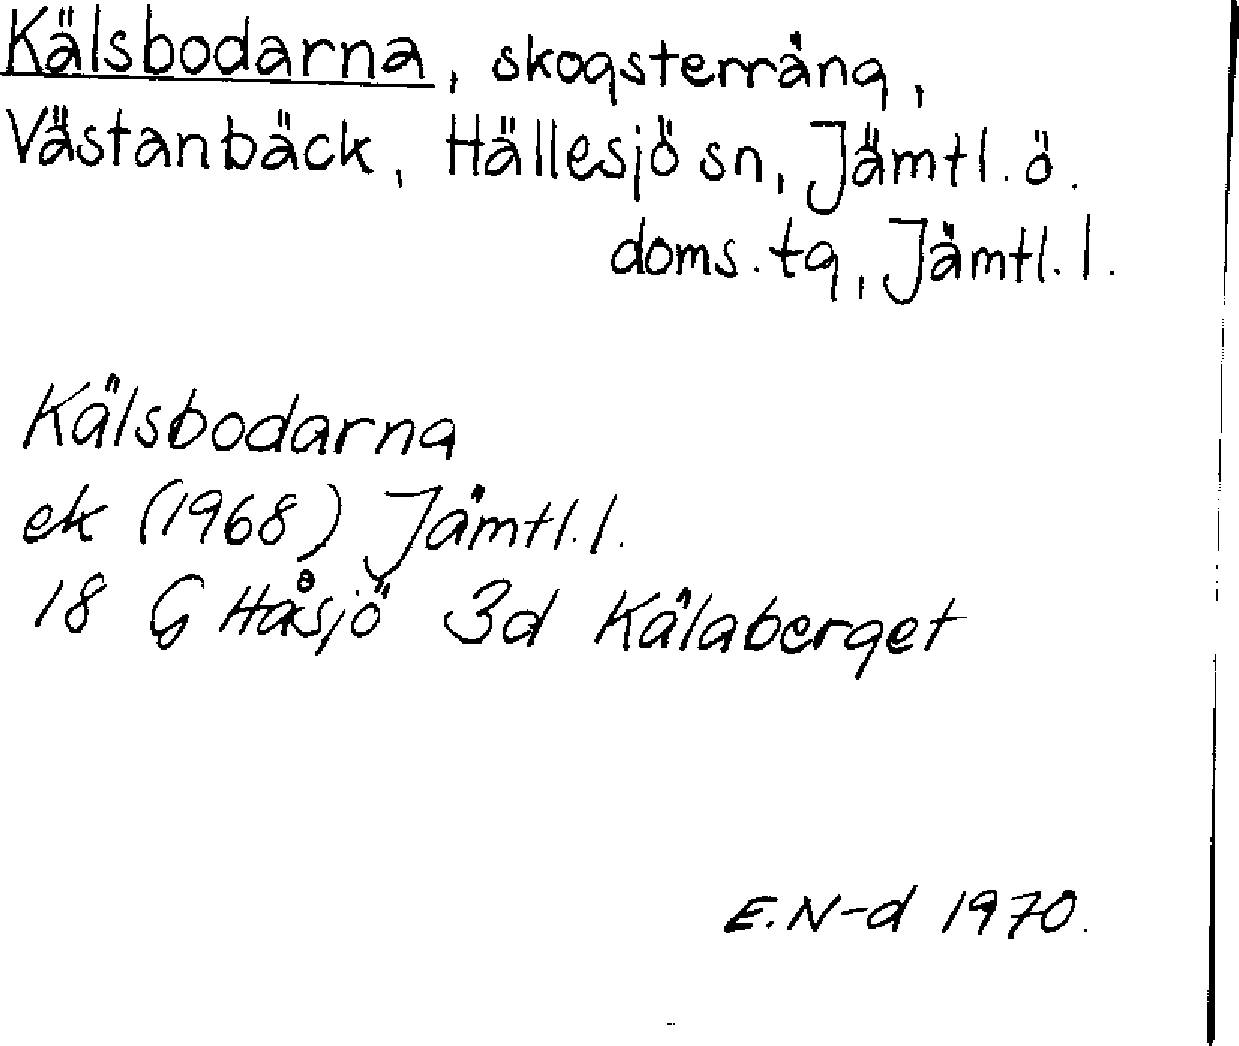 Kälsbodarna, skogsterräng,
Västanbäck, Hällesjö sn, Jämtl. ö.
doms. tg, Jämtl. l.
Kälsbodarna
ek (1968) Jämtl. l.
18 G Håsjö 3d Kälaberget
E. N-d 1970.